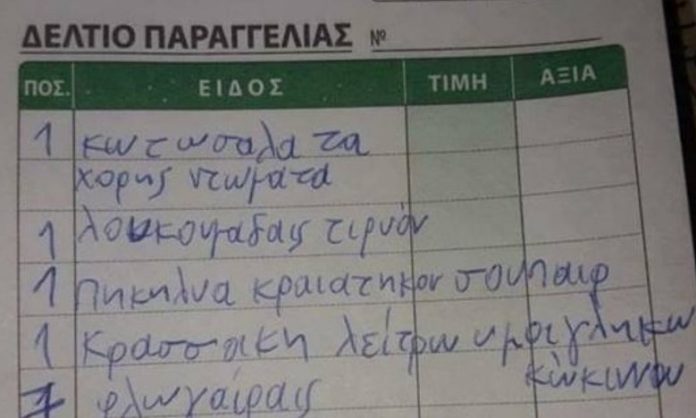 ΔΕΛΤΙΟ ΠΑΡΑΓΓΕΛΙΑΣ Νº
ΠΟΣ. ΕΙΔΟΣ ΤΙΜΗ ΑΞΙΑ
1 κωτωσαλατα
χορης ντωματα
1 λουκουμαδαις τιρυόν
1 πηκηλυα κραιατηκον σουπαιρ
1 Κρασσακη λείτρω ημοιγληκω
κώκινου
1 φλωγαίραις